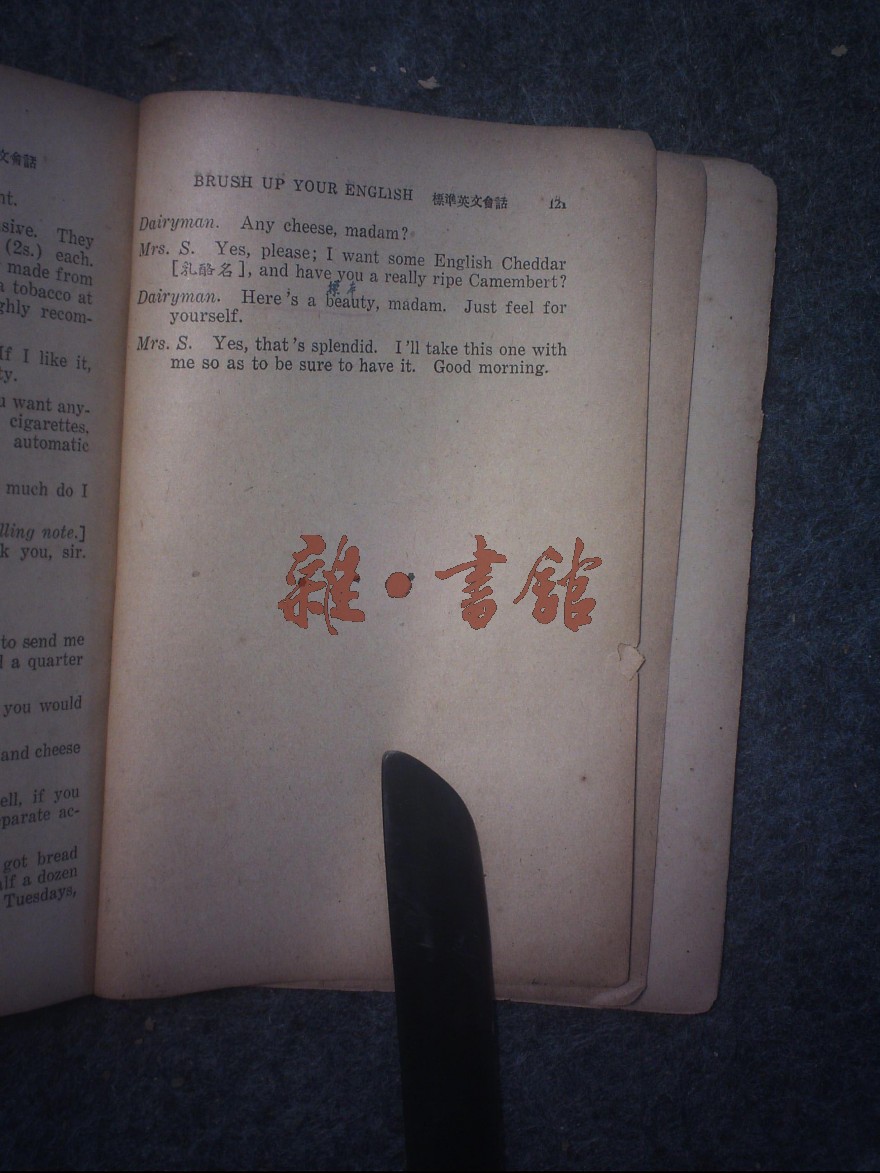 文會話
nt.
sive. They
(2s.) each.
made from
a tobacco at
ghly recom-
If I like it,
ty.
u want any-
cigarettes,
automatic
much do I
lling note.]
k you, sir.
to send me
l a quarter
you would
and cheese
ell, if you
parate ac-
got bread
alf a dozen
Tuesdays,
BRUSH UP YOUR ENGLISH 標準英文會話 121
Dairyman. Any cheese, madam?
Mrs. S. Yes, please; I want some English Cheddar
[乳酪名], and have you a really ripe Camembert?
Dairyman. Here's a beauty, madam. Just feel for
yourself.
Mrs. S. Yes, that's splendid. I'll take this one with
me so as to be sure to have it. Good morning.
雜•書館